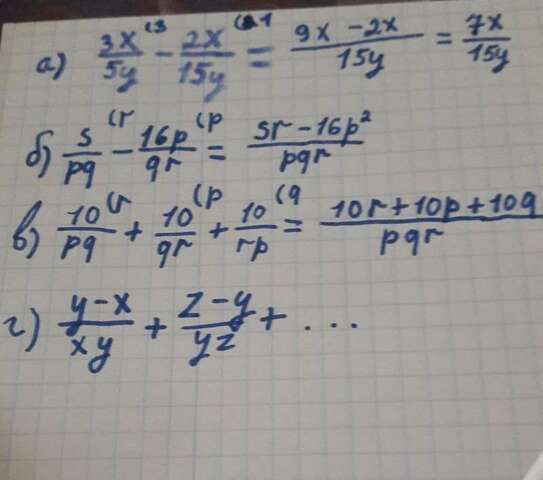 а) 3x/5y (3 - 2x/15y (1 = 9x - 2x/15y = 7x/15y
б) s/pq (r - 16p/qr (p = sr - 16p²/pqr
в) 10/pq (r + 10/qr (p + 10/rp (q = 10r + 10p + 10q/pqr
г) y - x/xy + z - y/yz + ...